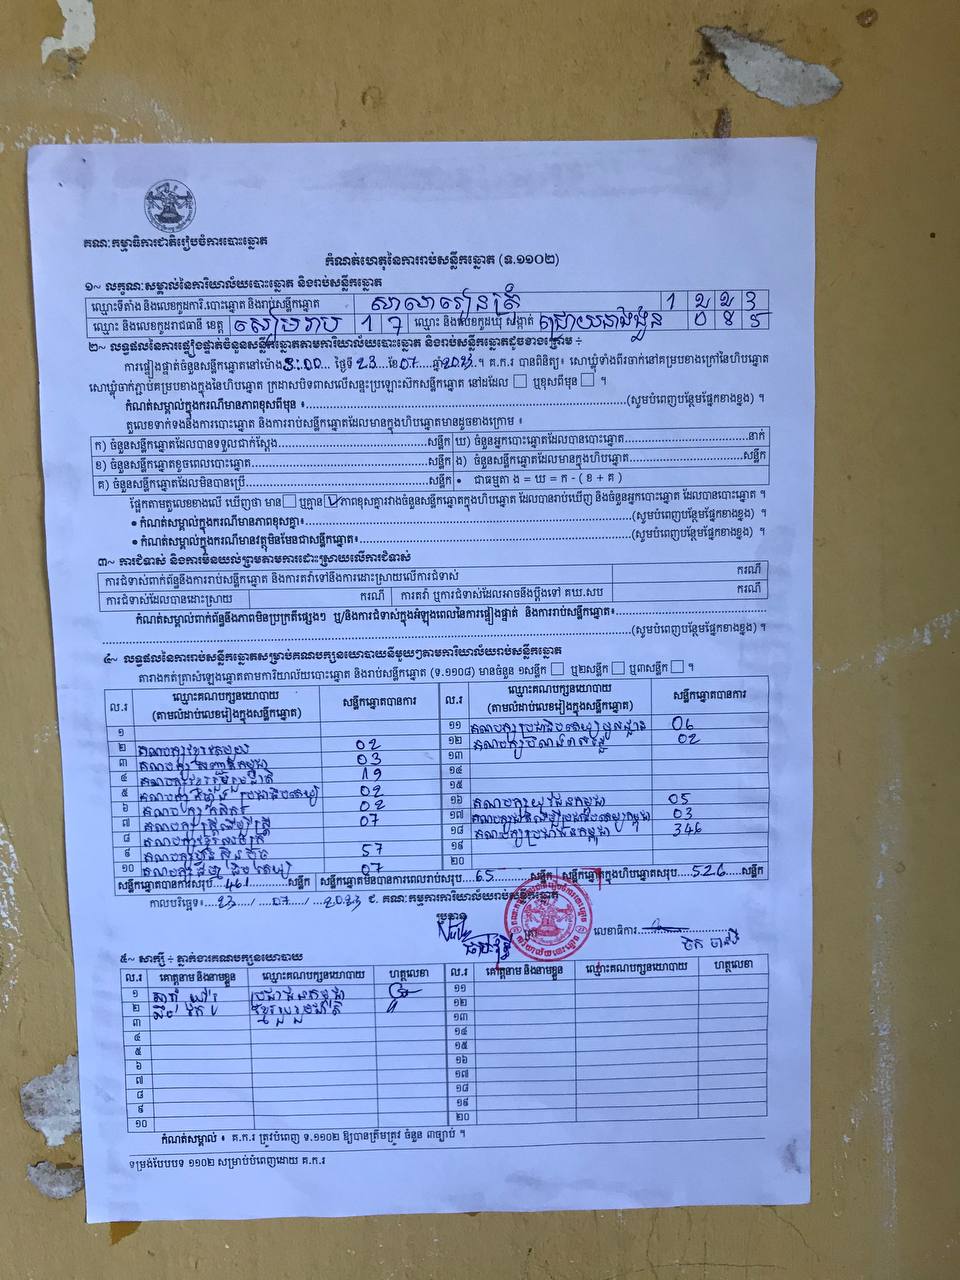 គណៈកម្មាធិការជាតិរៀបចំការបោះឆ្នោត
កំណត់ហេតុនៃការរាប់សន្លឹកឆ្នោត (ទ.១១០២)
១~ លក្ខណៈសម្គាល់នៃការិយាល័យបោះឆ្នោត និងរាប់សន្លឹកឆ្នោត
ឈ្មោះទីតាំង និងលេខកូដការិ.បោះឆ្នោត និងរាប់សន្លឹកឆ្នោត សាលារៀនត្រី 1 2 2 3
ឈ្មោះ និងលេខកូដរាជធានី ខេត្ត សៀមរាប 1 7 ឈ្មោះ និងលេខកូដឃុំ សង្កាត់ 0 4 5
២~ លទ្ធផលនៃការផ្ទៀងផ្ទាត់ចំនួនសន្លឹកឆ្នោតតាមការិយាល័យបោះឆ្នោត និងរាប់សន្លឹកឆ្នោតដូចខាងក្រោម ÷
ការផ្ទៀងផ្ទាត់ចំនួនសន្លឹកឆ្នោតនៅម៉ោង 3:00 ថ្ងៃទី 23 ខែ 07 ឆ្នាំ 2023 ។ គ.ក.រ បានពិនិត្យ ៖ សោឃ្លុំទាំងពីរចាក់នៅគម្របខាងក្រៅនៃហិបឆ្នោត
សោឃ្លុំចាក់ភ្ជាប់គម្របខាងក្នុងនៃហិបឆ្នោត ក្រដាសបិទពាសលើសន្ទះប្រឡោះសិកសន្លឹកឆ្នោត នៅដដែល ☐ ឬខុសពីមុន ☐ ។
កំណត់សម្គាល់ក្នុងករណីមានភាពខុសពីមុន ៖ (សូមបំពេញបន្ថែមផ្នែកខាងខ្នង) ។
តួលេខទាក់ទងនឹងការបោះឆ្នោត និងការរាប់សន្លឹកឆ្នោតដែលមានក្នុងហិបឆ្នោតមានដូចខាងក្រោម ៖
ក) ចំនួនសន្លឹកឆ្នោតដែលបានទទួលជាក់ស្តែង សន្លឹក ឃ) ចំនួនអ្នកបោះឆ្នោតដែលបានបោះឆ្នោត នាក់
ខ) ចំនួនសន្លឹកឆ្នោតខូចពេលបោះឆ្នោត សន្លឹក ង) ចំនួនសន្លឹកឆ្នោតដែលមានក្នុងហិបឆ្នោត សន្លឹក
គ) ចំនួនសន្លឹកឆ្នោតដែលមិនបានប្រើ សន្លឹក • ជាធម្មតា ង = ឃ = ក - ( ខ + គ )
ផ្អែកតាមតួលេខខាងលើ ឃើញថា មាន ☐ ឬគ្មាន ☑ ភាពខុសគ្នារវាងចំនួនសន្លឹកឆ្នោតក្នុងហិបឆ្នោត ដែលបានរាប់ឃើញ និងចំនួនអ្នកបោះឆ្នោត ដែលបានបោះឆ្នោត ។
• កំណត់សម្គាល់ក្នុងករណីមានភាពខុសគ្នា៖ (សូមបំពេញបន្ថែមផ្នែកខាងខ្នង) ។
• កំណត់សម្គាល់ក្នុងករណីមានវត្ថុមិនមែនជាសន្លឹកឆ្នោត៖ (សូមបំពេញបន្ថែមផ្នែកខាងខ្នង) ។
៣~ ការជំទាស់ និងការមិនយល់ព្រមតាមការដោះស្រាយលើការជំទាស់
ការជំទាស់ពាក់ព័ន្ធនឹងការរាប់សន្លឹកឆ្នោត និងការតវ៉ាទៅនឹងការដោះស្រាយលើការជំទាស់ ករណី
ការជំទាស់ដែលបានដោះស្រាយ ករណី ការតវ៉ា ឬការជំទាស់ដែលអាចនឹងប្តឹងទៅ គឃ.សប ករណី
កំណត់សម្គាល់ពាក់ព័ន្ធនឹងភាពមិនប្រក្រតីផ្សេងៗ ឬ/និងការជំទាស់ក្នុងអំឡុងពេលនៃការផ្ទៀងផ្ទាត់ និងការរាប់សន្លឹកឆ្នោត៖
(សូមបំពេញបន្ថែមផ្នែកខាងខ្នង) ។
៤~ លទ្ធផលនៃការរាប់សន្លឹកឆ្នោតសម្រាប់គណបក្សនយោបាយនីមួយៗតាមការិយាល័យរាប់សន្លឹកឆ្នោត
តារាងកត់ត្រាសំឡេងឆ្នោតតាមការិយាល័យបោះឆ្នោត និងរាប់សន្លឹកឆ្នោត (ទ.១១០៨) មានចំនួន ១សន្លឹក ☐ ឬ២សន្លឹក ☐ ឬ៣សន្លឹក ☐ ។
ល.រ ឈ្មោះគណបក្សនយោបាយ (តាមលំដាប់លេខរៀងក្នុងសន្លឹកឆ្នោត) សន្លឹកឆ្នោតបានការ ល.រ ឈ្មោះគណបក្សនយោបាយ (តាមលំដាប់លេខរៀងក្នុងសន្លឹកឆ្នោត) សន្លឹកឆ្នោតបានការ
១ ១១ គណបក្សប្រជាធិបតេយ្យមូលដ្ឋាន 06
២ គណបក្សខ្មែរតែមួយ 02 ១២ គណបក្ស 02
៣ គណបក្សសញ្ជាតិកម្ពុជា 03 ១៣
៤ គណបក្សខ្មែររួបរួមជាតិ 19 ១៤
៥ គណបក្ស ប្រជាធិបតេយ្យ 02 ១៥
៦ គណបក្សកសិករ 02 ១៦ គណបក្សយុវជនកម្ពុជា 05
៧ គណបក្សស្ត្រីដើម្បីស្ត្រី 07 ១៧ 03
៨ គណបក្សខ្មែរ ១៨ គណបក្សប្រជាជនកម្ពុជា 346
៩ គណបក្សហ៊្វុនស៊ិនប៉ិច 57 ១៩
១០ គណបក្ស 07 ២០
សន្លឹកឆ្នោតបានការសរុប 461 សន្លឹក សន្លឹកឆ្នោតមិនបានការពេលរាប់សរុប 65 សន្លឹក សន្លឹកឆ្នោតក្នុងហិបឆ្នោតសរុប 526 សន្លឹក
កាលបរិច្ឆេទ៖ 23 / 07 / 2023 ៩. គណៈកម្មការការិយាល័យរាប់សន្លឹកឆ្នោត
ប្រធាន លេខាធិការ
៥~ សាក្សី ÷ ភ្នាក់ងារគណបក្សនយោបាយ
ល.រ គោត្តនាម និងនាមខ្លួន ឈ្មោះគណបក្សនយោបាយ ហត្ថលេខា ល.រ គោត្តនាម និងនាមខ្លួន ឈ្មោះគណបក្សនយោបាយ ហត្ថលេខា
១ ប្រជាជនកម្ពុជា ១១
២ ខ្មែររួបរួមជាតិ ១២
៣ ១៣
៤ ១៤
៥ ១៥
៦ ១៦
៧ ១៧
៨ ១៨
៩ ១៩
១០ ២០
កំណត់សម្គាល់ ៖ គ.ក.រ ត្រូវបំពេញ ទ.១១០២ ឱ្យបានត្រឹមត្រូវ ចំនួន ៣ច្បាប់ ។
ទម្រង់បែបបទ ១១០២ សម្រាប់បំពេញដោយ គ.ក.រ